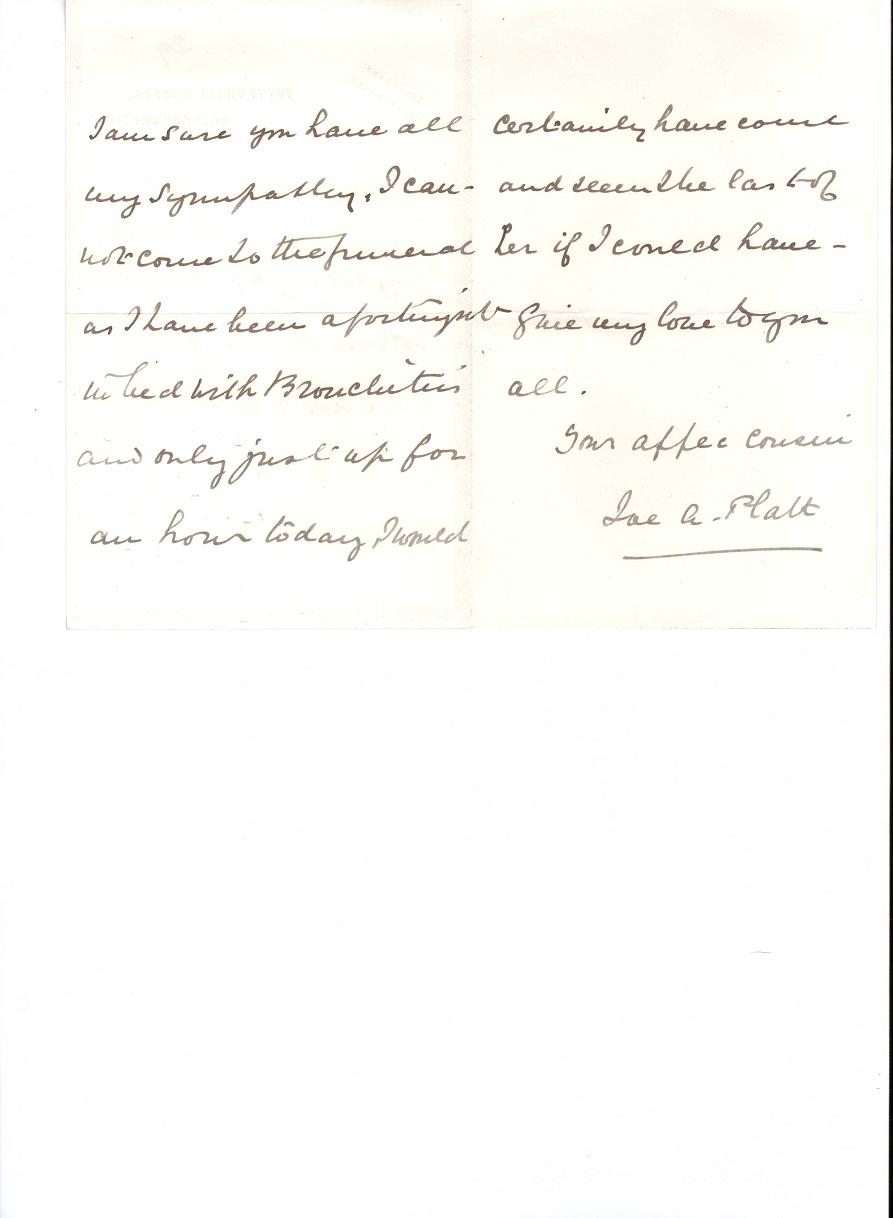 I am sure you have all
my sympathy, I can-
not come to the funeral
as I have been a fortnight
in bed with Bronchitis
and only just up for
an hour today, I would
certainly have come
and seen the last of
her if I could have -
Give my love to you
all.
Your affec cousin
A. Platt